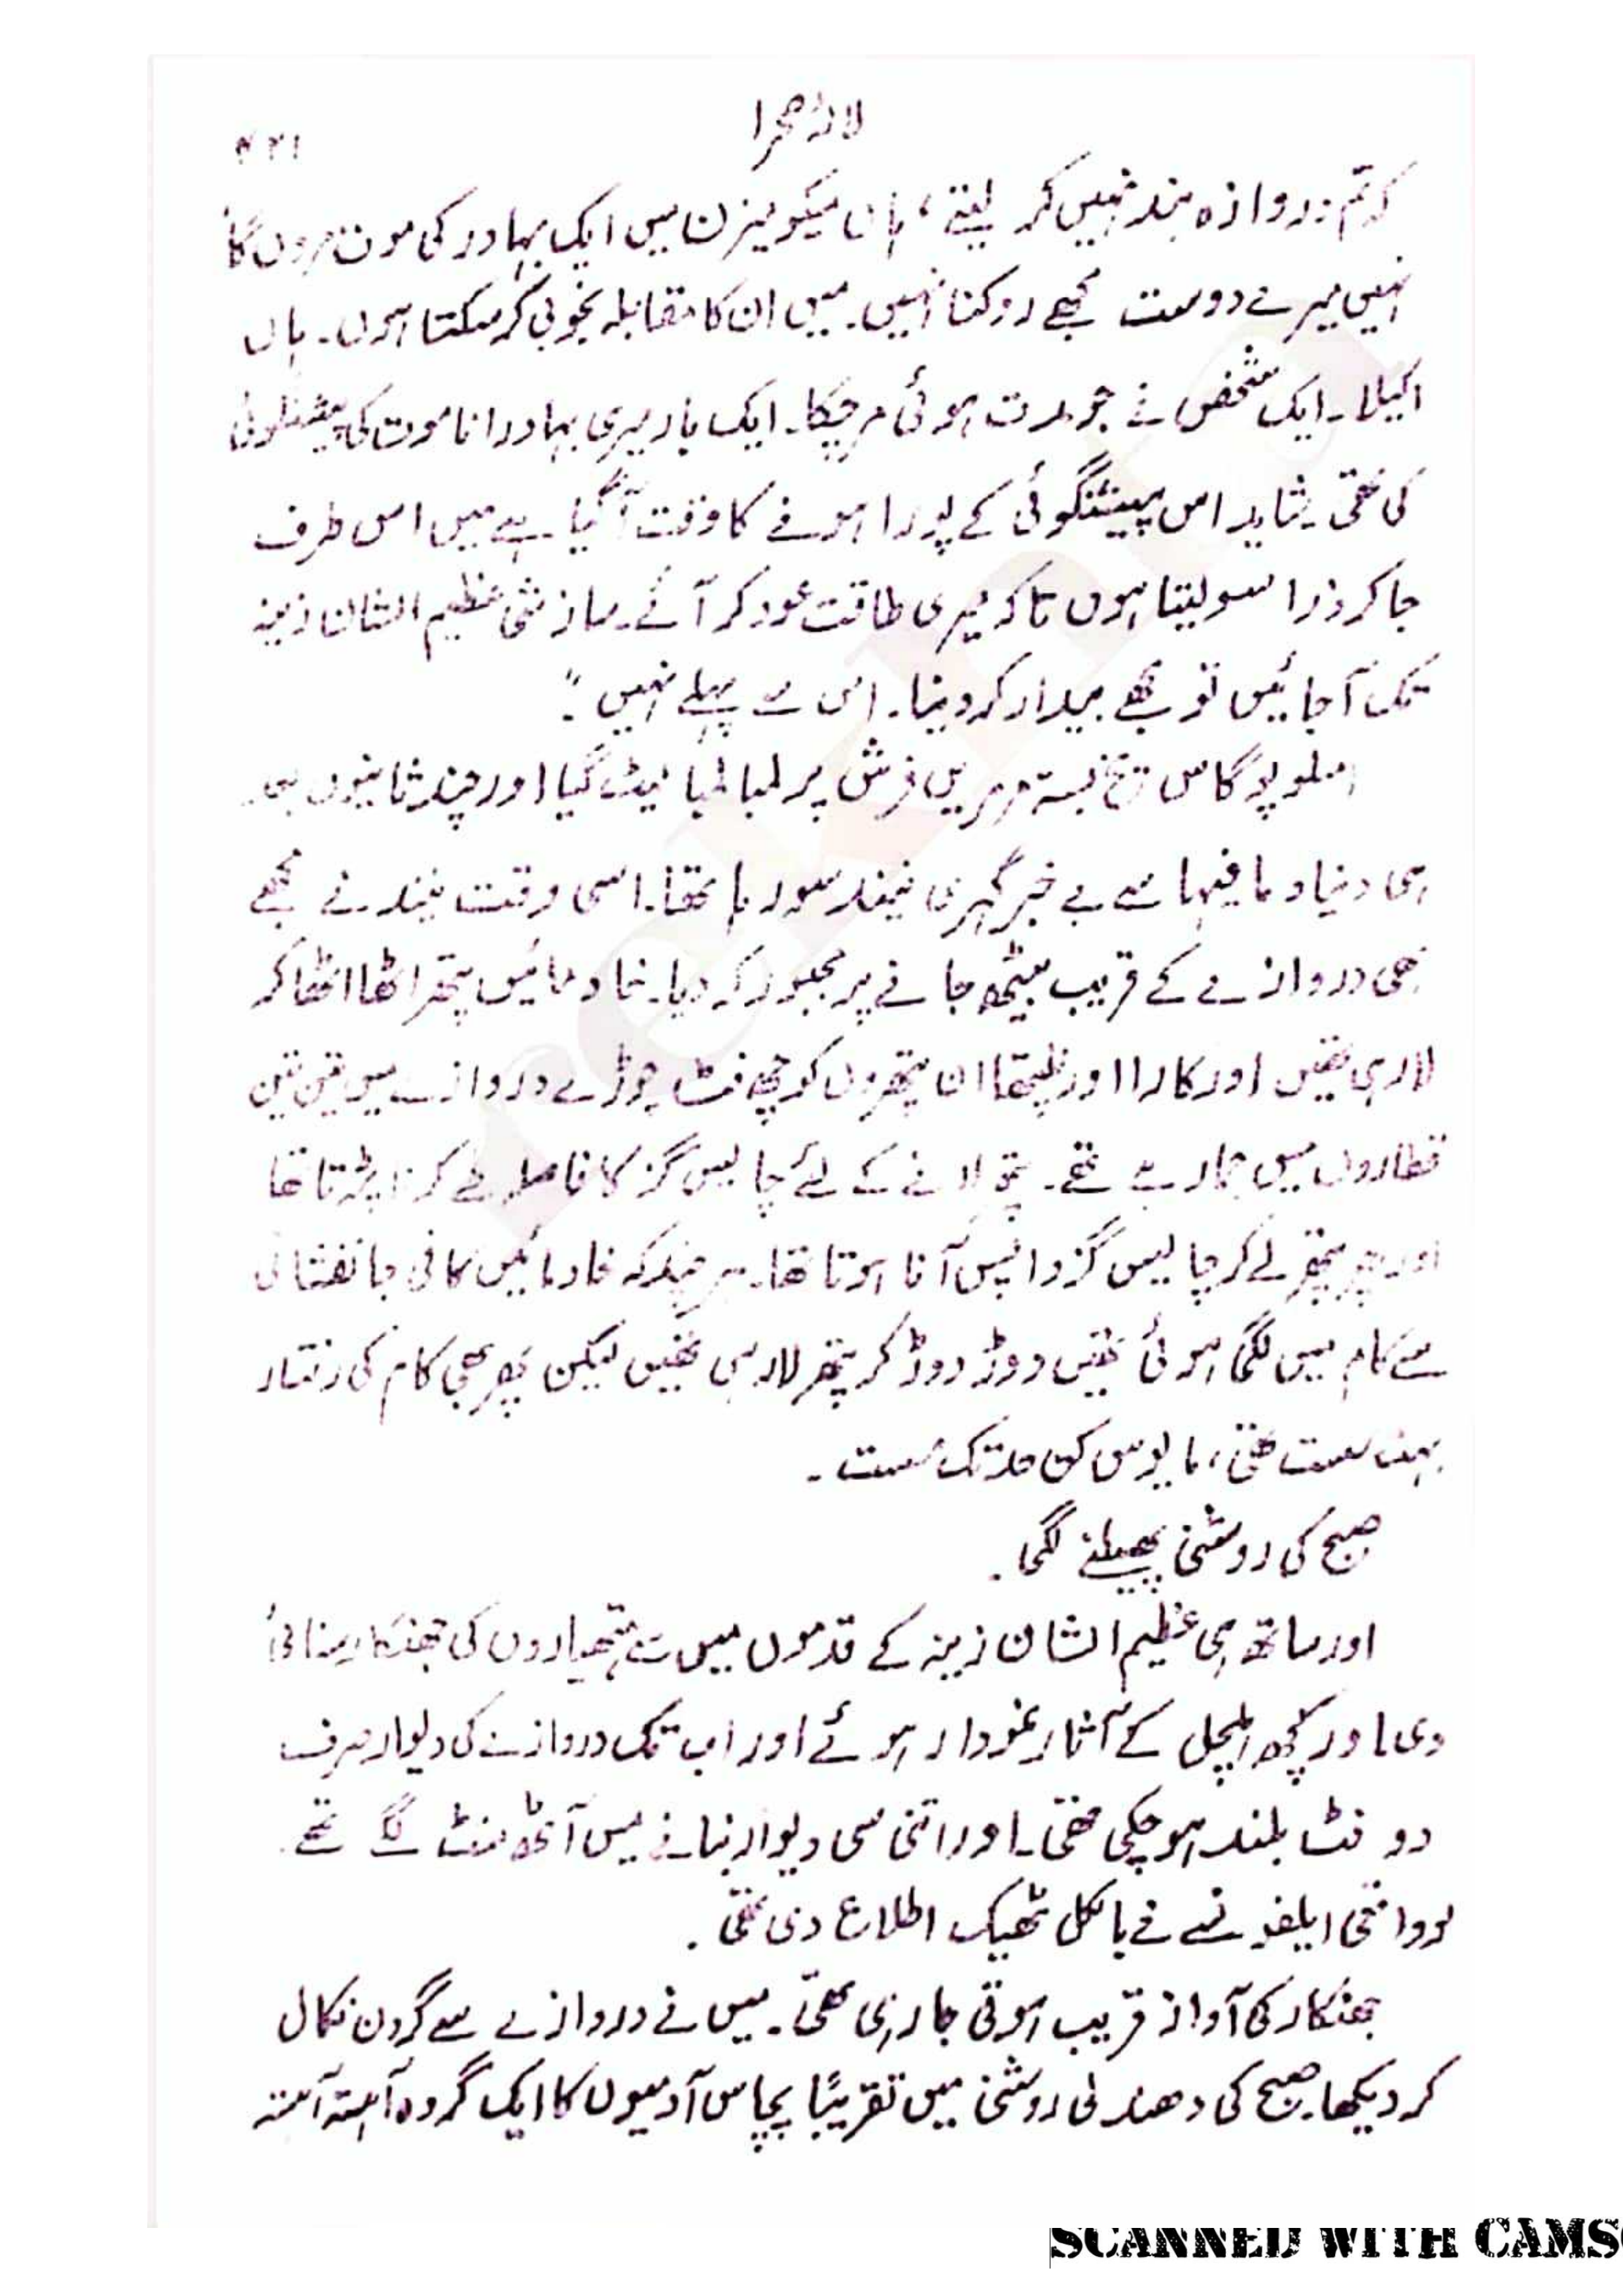 لالۂ صحرا
۴۲۱
کہ تم دروازہ بند نہیں کر لیتے، ہاں میکومیزن میں ایک بہادر کی موت مروں گا
نہیں میرے دوست مجھے روکنا نہیں۔ میں ان کا مقابلہ بخوبی کر سکتا ہوں۔ ہاں
اکیلا۔ ایک شخص نے جو مدت ہوئی مر چکا۔ ایک بار میری بہادرانا موت کی پیشنگوئی
کی تھی۔ شاید اس پیشنگوئی کے پورا ہونے کا وقت آ گیا ہے میں اس طرف
جا کر ذرا سو لیتا ہوں تاکہ میری طاقت عود کر آئے۔ سازشی عظیم الشان زینہ
تک آ جائیں تو مجھے بیدار کر دینا۔ اس سے پہلے نہیں۔"
امسلوپوگاس یخ بستہ مرمریں فرش پر لمبا لمبا لیٹ گیا اور چند ثانیوں
ہی دنیا و مافیہا سے بے خبر گہری نیند سو رہا تھا۔ اسی وقت نیند نے مجھے
بھی دروازے کے قریب بیٹھ جانے پر مجبور کر دیا۔ خادمائیں پتھر اٹھا اٹھا کر
لا رہی تھیں اور کارا اور نلیتھا ان پتھروں کو چھ فٹ چوڑے دروازے میں تین تین
قطاروں میں جما رہے تھے۔ پتھر لانے کے لئے چالیس گز کا فاصلہ طے کرنا پڑتا تھا
اور پھر پتھر لے کر چالیس گز واپس آنا ہوتا تھا۔ ہر چند کہ خادمائیں کافی جانفشانی
سے کام میں لگی ہوئی تھیں دوڑ دوڑ کر پتھر لا رہی تھیں لیکن پھر بھی کام کی رفتار
بہت سست تھی، مایوس کن حد تک سست۔
صبح کی روشنی پھیلنے لگی۔
اور ساتھ ہی عظیم الشان زینہ کے قدموں میں سے ہتھیاروں کی جھنکار سنائی
دی اور کچھ ہلچل کے آثار نمودار ہوئے اور اب تک دروازے کی دیوار صرف
دو فٹ بلند ہو چکی تھی۔ اور اتنی سی دیوار بنانے میں آٹھ منٹ لگے تھے۔
تو واقعی ایلفونسے نے بالکل ٹھیک اطلاع دی تھی۔
جھنکار کی آواز قریب ہوتی جا رہی تھی۔ میں نے دروازے سے گردن نکال
کر دیکھا۔ صبح کی دھندلی روشنی میں تقریباً پچاس آدمیوں کا ایک گروہ آہستہ آہستہ
rekhta
SCANNED WITH CAMS